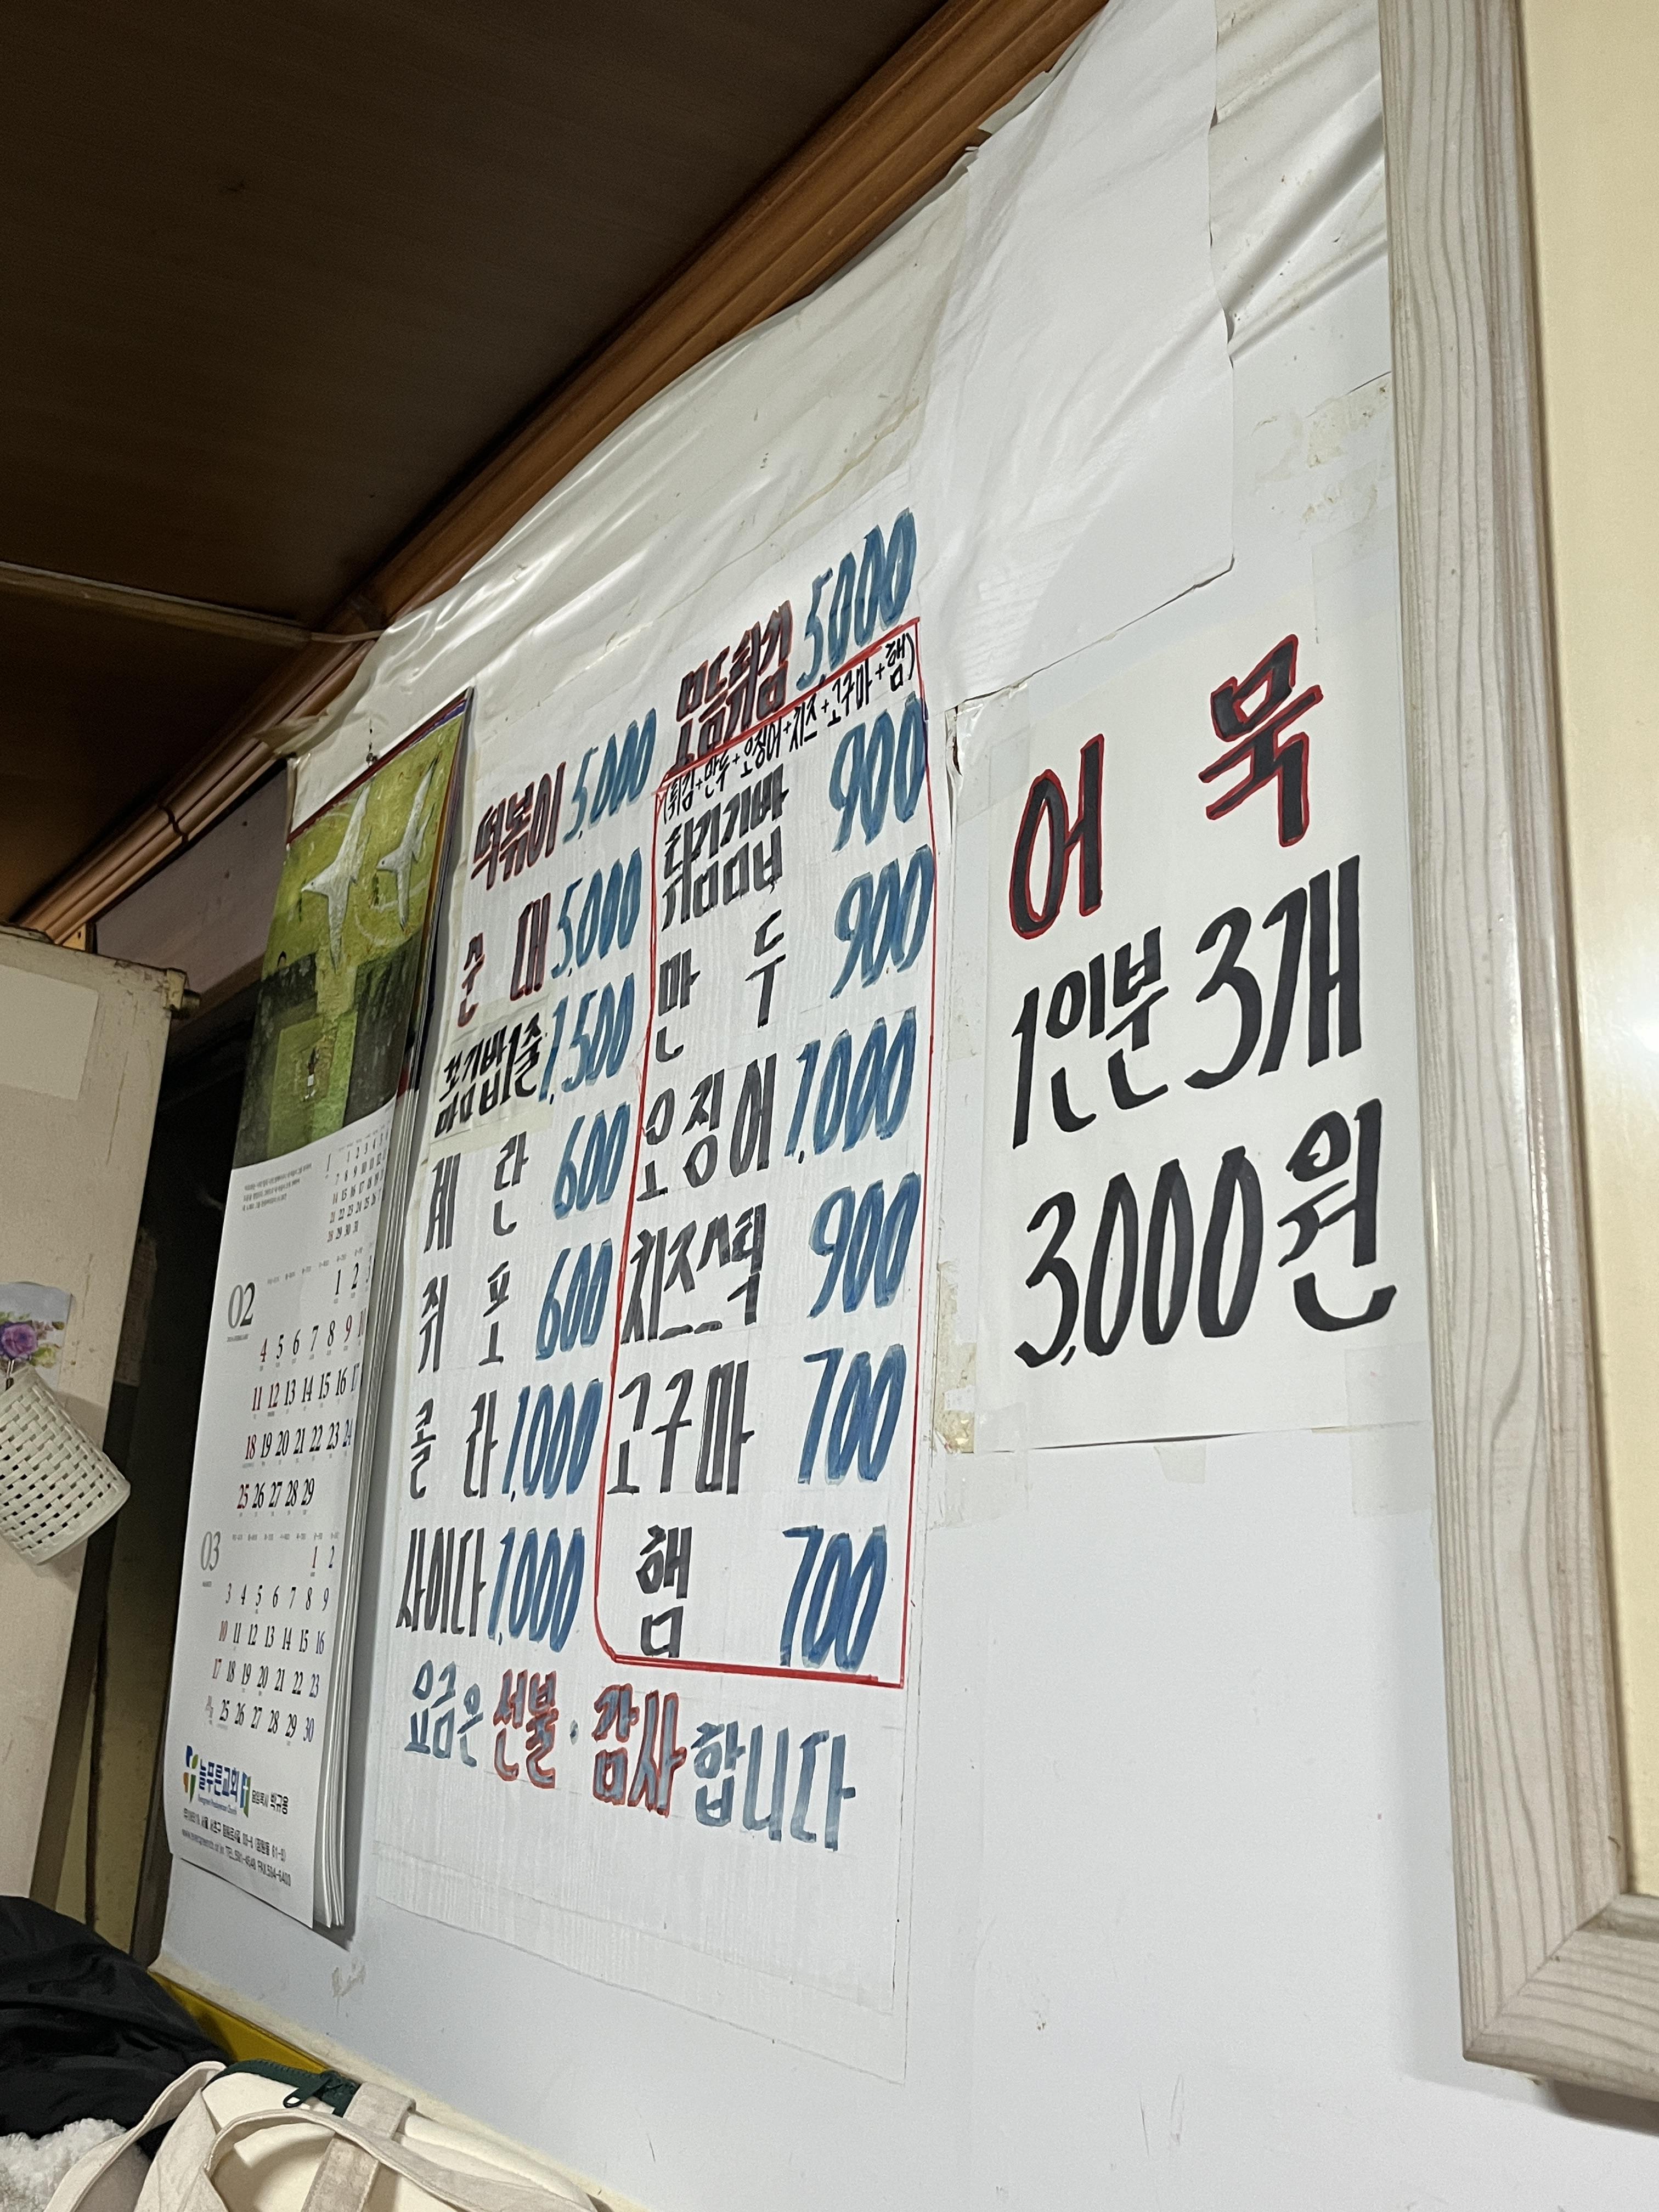 떡볶이 5,000
순대 5,000
꼬마김밥1줄 1,500
계란 600
쥐포 600
콜라 1,000
사이다 1,000
모듬튀김 5,000
(튀김+만두+오징어+치즈+고구마+햄)
튀김김밥 900
만두 900
오징어 1,000
치즈스틱 900
고구마 700
햄 700
요금은 선불·감사합니다
어묵
1인분 3개
3,000원
02
1 2 3
4 5 6 7 8 9 10
11 12 13 14 15 16 17
18 19 20 21 22 23 24
25 26 27 28 29
03
1 2
3 4 5 6 7 8 9
10 11 12 13 14 15 16
17 18 19 20 21 22 23
25 26 27 28 29 30
늘푸른교회 담임목사 박규용